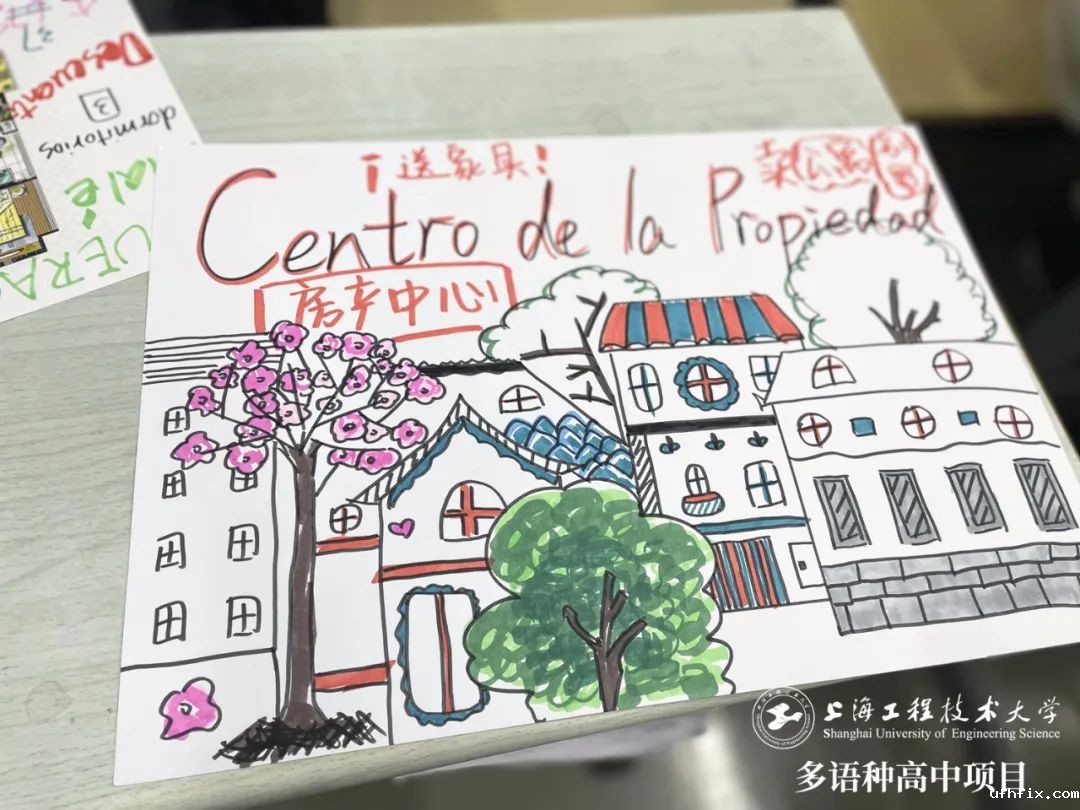 ¡送家具!
卖公寓
Centro de la Propiedad
房产中心
37
Desayunt
3
dormitorios
上海工程技术大学
Shanghai University of Engineering Science
多语种高中项目
ufhfix.com